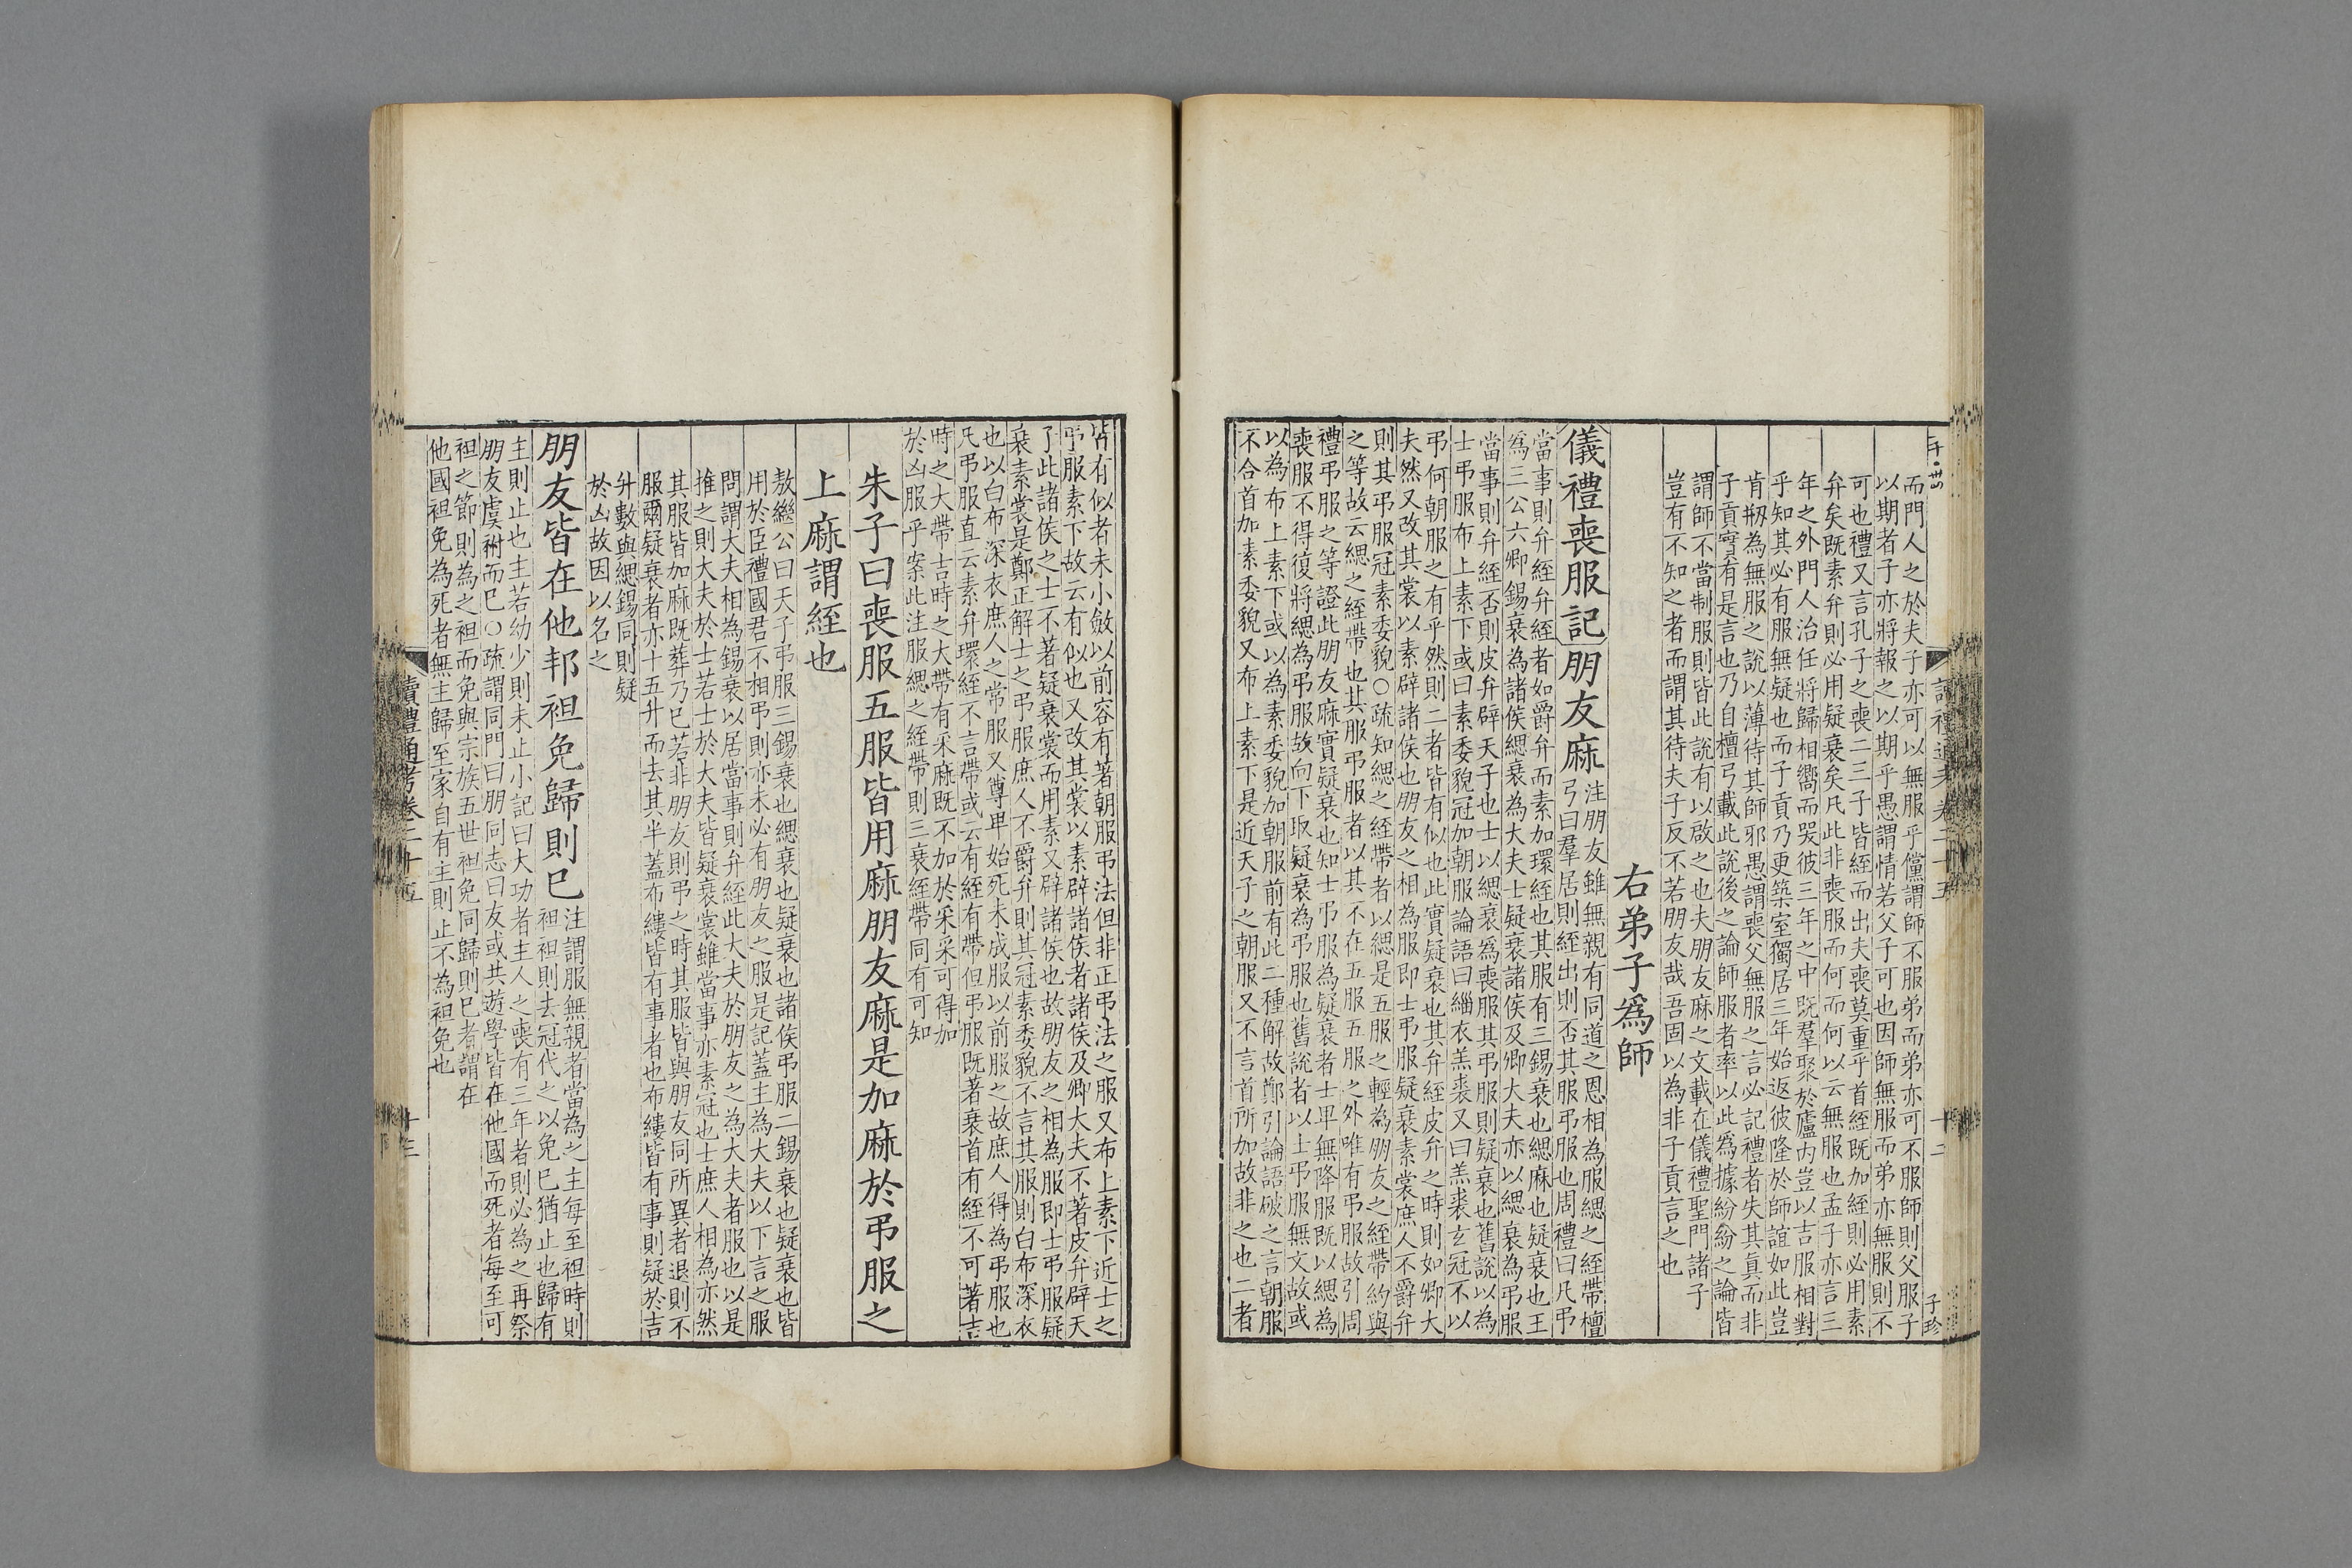 而門人之於夫子亦可以無服乎儻謂師不服弟而弟亦可不服師則父服子
以期者子亦將報之以期乎愚謂情若父子可也因師無服而弟亦無服則不
可也禮又言孔子之喪二三子皆絰而出夫喪莫重乎首絰既加絰則必用素
弁矣既素弁則必用疑衰矣凡此非喪服而何而何以云無服也孟子亦言三
年之外門人治任將歸相嚮而哭彼三年之中既羣聚於廬內豈以吉服相對
乎知其必有服無疑也而子貢乃更築室獨居三年始返彼隆於師誼如此豈
肯剏為無服之說以薄待其師邪愚謂喪父無服之言必記禮者失其真而非
子貢實有是言也乃自檀弓載此說後之論師服者率以此為據紛紛之論皆
謂師不當制服則皆此說有以啟之也夫朋友麻之文載在儀禮聖門諸子
豈有不知之者而謂其待夫子反不若朋友哉吾固以為非子貢言之也
右弟子為師
儀禮喪服記朋友麻
注朋友雖無親有同道之恩相為服緦之絰帶檀
弓曰羣居則絰出則否其服弔服也周禮曰凡弔
當事則弁絰弁絰者如爵弁而素加環絰也其服有三錫衰也緦麻也疑衰也王
為三公六卿錫衰為諸侯緦衰為大夫士疑衰諸侯及卿大夫亦以緦衰為弔服
當事則弁絰否則皮弁辟天子也士以緦衰為喪服其弔服則疑衰也舊說以為
士弔服布上素下或曰素委貌冠加朝服論語曰緇衣羔裘又曰羔裘玄冠不以
弔何朝服之有乎然則二者皆有似也此實疑衰也其弁絰皮弁之時則如卿大
夫然又改其裳以素辟諸侯也朋友之相為服即士弔服疑衰素裳庶人不爵弁
則其弔服冠素委貌○疏知緦之絰帶者以緦是五服之輕為朋友之絰帶約與
之等故云緦之絰帶也其服弔服者以其不在五服五服之外唯有弔服故引周
禮弔服之等證此朋友麻實疑衰也知士弔服為疑衰者士卑無降服既以緦為
喪服不得復將緦為弔服故向下取疑衰為弔服也舊說者以士弔服無文故或
以為布上素下或以為素委貌加朝服前有此二種解故鄭引論語破之言朝服
不合首加素委貌又布上素下是近天子之朝服又不言首所加故非之也二者
皆有似者未小斂以前容有著朝服弔法但非正弔法之服又布上素下近士之
弔服素下故云有似也又改其裳以素辟諸侯者諸侯及卿大夫不著皮弁辟天
了此諸侯之士不著疑衰裳而用素又辟諸侯也故朋友之相為服即士弔服疑
衰素裳是鄭正解士之弔服庶人不爵弁則其冠素委貌不言其服則白布深衣
也以白布深衣庶人之常服又尊卑始死未成服以前服之故庶人得為弔服也
凡弔服直云素弁環絰不言帶或云有絰有帶但弔服既著衰首有絰不可著吉
時之大帶吉時之大帶有采麻既不加於采采可得加
於凶服乎案此注服緦之絰帶則三衰絰帶同有可知
朱子曰喪服五服皆用麻朋友麻是加麻於弔服之
上麻謂絰也
敖繼公曰天子弔服三錫衰也緦衰也疑衰也諸侯弔服二錫衰也疑衰也皆
用於臣禮國君不相弔則亦未必有朋友之服是記蓋主為大夫以下言之服
問謂大夫相為錫衰以居當事則弁絰此大夫於朋友之為大夫者服也以是
推之則大夫於士若士於大夫皆疑衰裳雖當事亦素冠也士庶人相為亦然
其服皆加麻既葬乃已若非朋友則弔之時其服皆與朋友同所異者退則不
服爾疑衰者亦十五升而去其半蓋布縷皆有事者也布縷皆有事則疑於吉
升數與緦錫同則疑
於凶故因以名之
朋友皆在他邦袒免歸則已
注謂服無親者當為之主每至袒時則
袒袒則去冠代之以免已猶止也歸有
主則止也主若幼少則未止小記曰大功者主人之喪有三年者則必為之再祭
朋友虞祔而已○疏謂同門曰朋同志曰友或共遊學皆在他國而死者每至可
袒之節則為之袒而免與宗族五世袒免同歸則已者謂在
他國袒免為死者無主歸至家自有主則止不為袒免也
讀禮通考卷二十五
十三